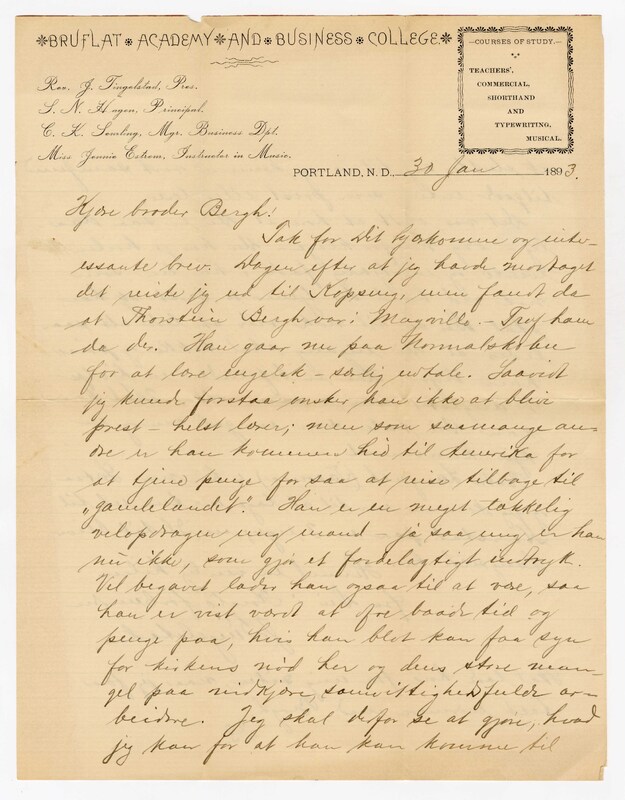 BRUFLAT ACADEMY AND BUSINESS COLLEGE
—COURSES OF STUDY.—
TEACHERS',
COMMERCIAL,
SHORTHAND
AND
TYPEWRITING,
MUSICAL.
Rev. J. Tingelstad, Pres.
S. N. Hagen, Principal.
C. K. Semling, Mgr. Business Dpt.
Miss Jennie Estrem, Instructor in Music.
PORTLAND, N. D., 30 Jan 1893.
Kjære broder Bergh!
Tak for Dit kjærkomne og inte-
ressante brev. Dagen efter at jeg havde modtaget
det reiste jeg ud til men fandt da
at Thorstein Bergh var i Mayville. – Traf ham
da der. Han gaar nu paa Normalskolen
for at lære engelsk – særlig udtale. Saavidt
jeg kunde forstaa ønsker han ikke at blive
prest – helst lærer; men som saamange an-
dre er han kommen hid til Amerika for
at tjene penge for saa at reise tilbage til
„gamlelandet". Han er en meget tækkelig
velopdragen ung mand – ja saa ung er han
nu ikke, som gjør et fordelagtigt indtryk.
Vel begavet lader han ogsaa til at være, saa
han er vist værdt at ofre baade tid og
penge paa, hvis han blot kan faa syn
for kirkens nød her og dens store man-
gel paa nidkjære, samvittighedsfulde ar-
beidere. Jeg skal derfor se at gjøre, hvad
jeg kan for at han kan komme til